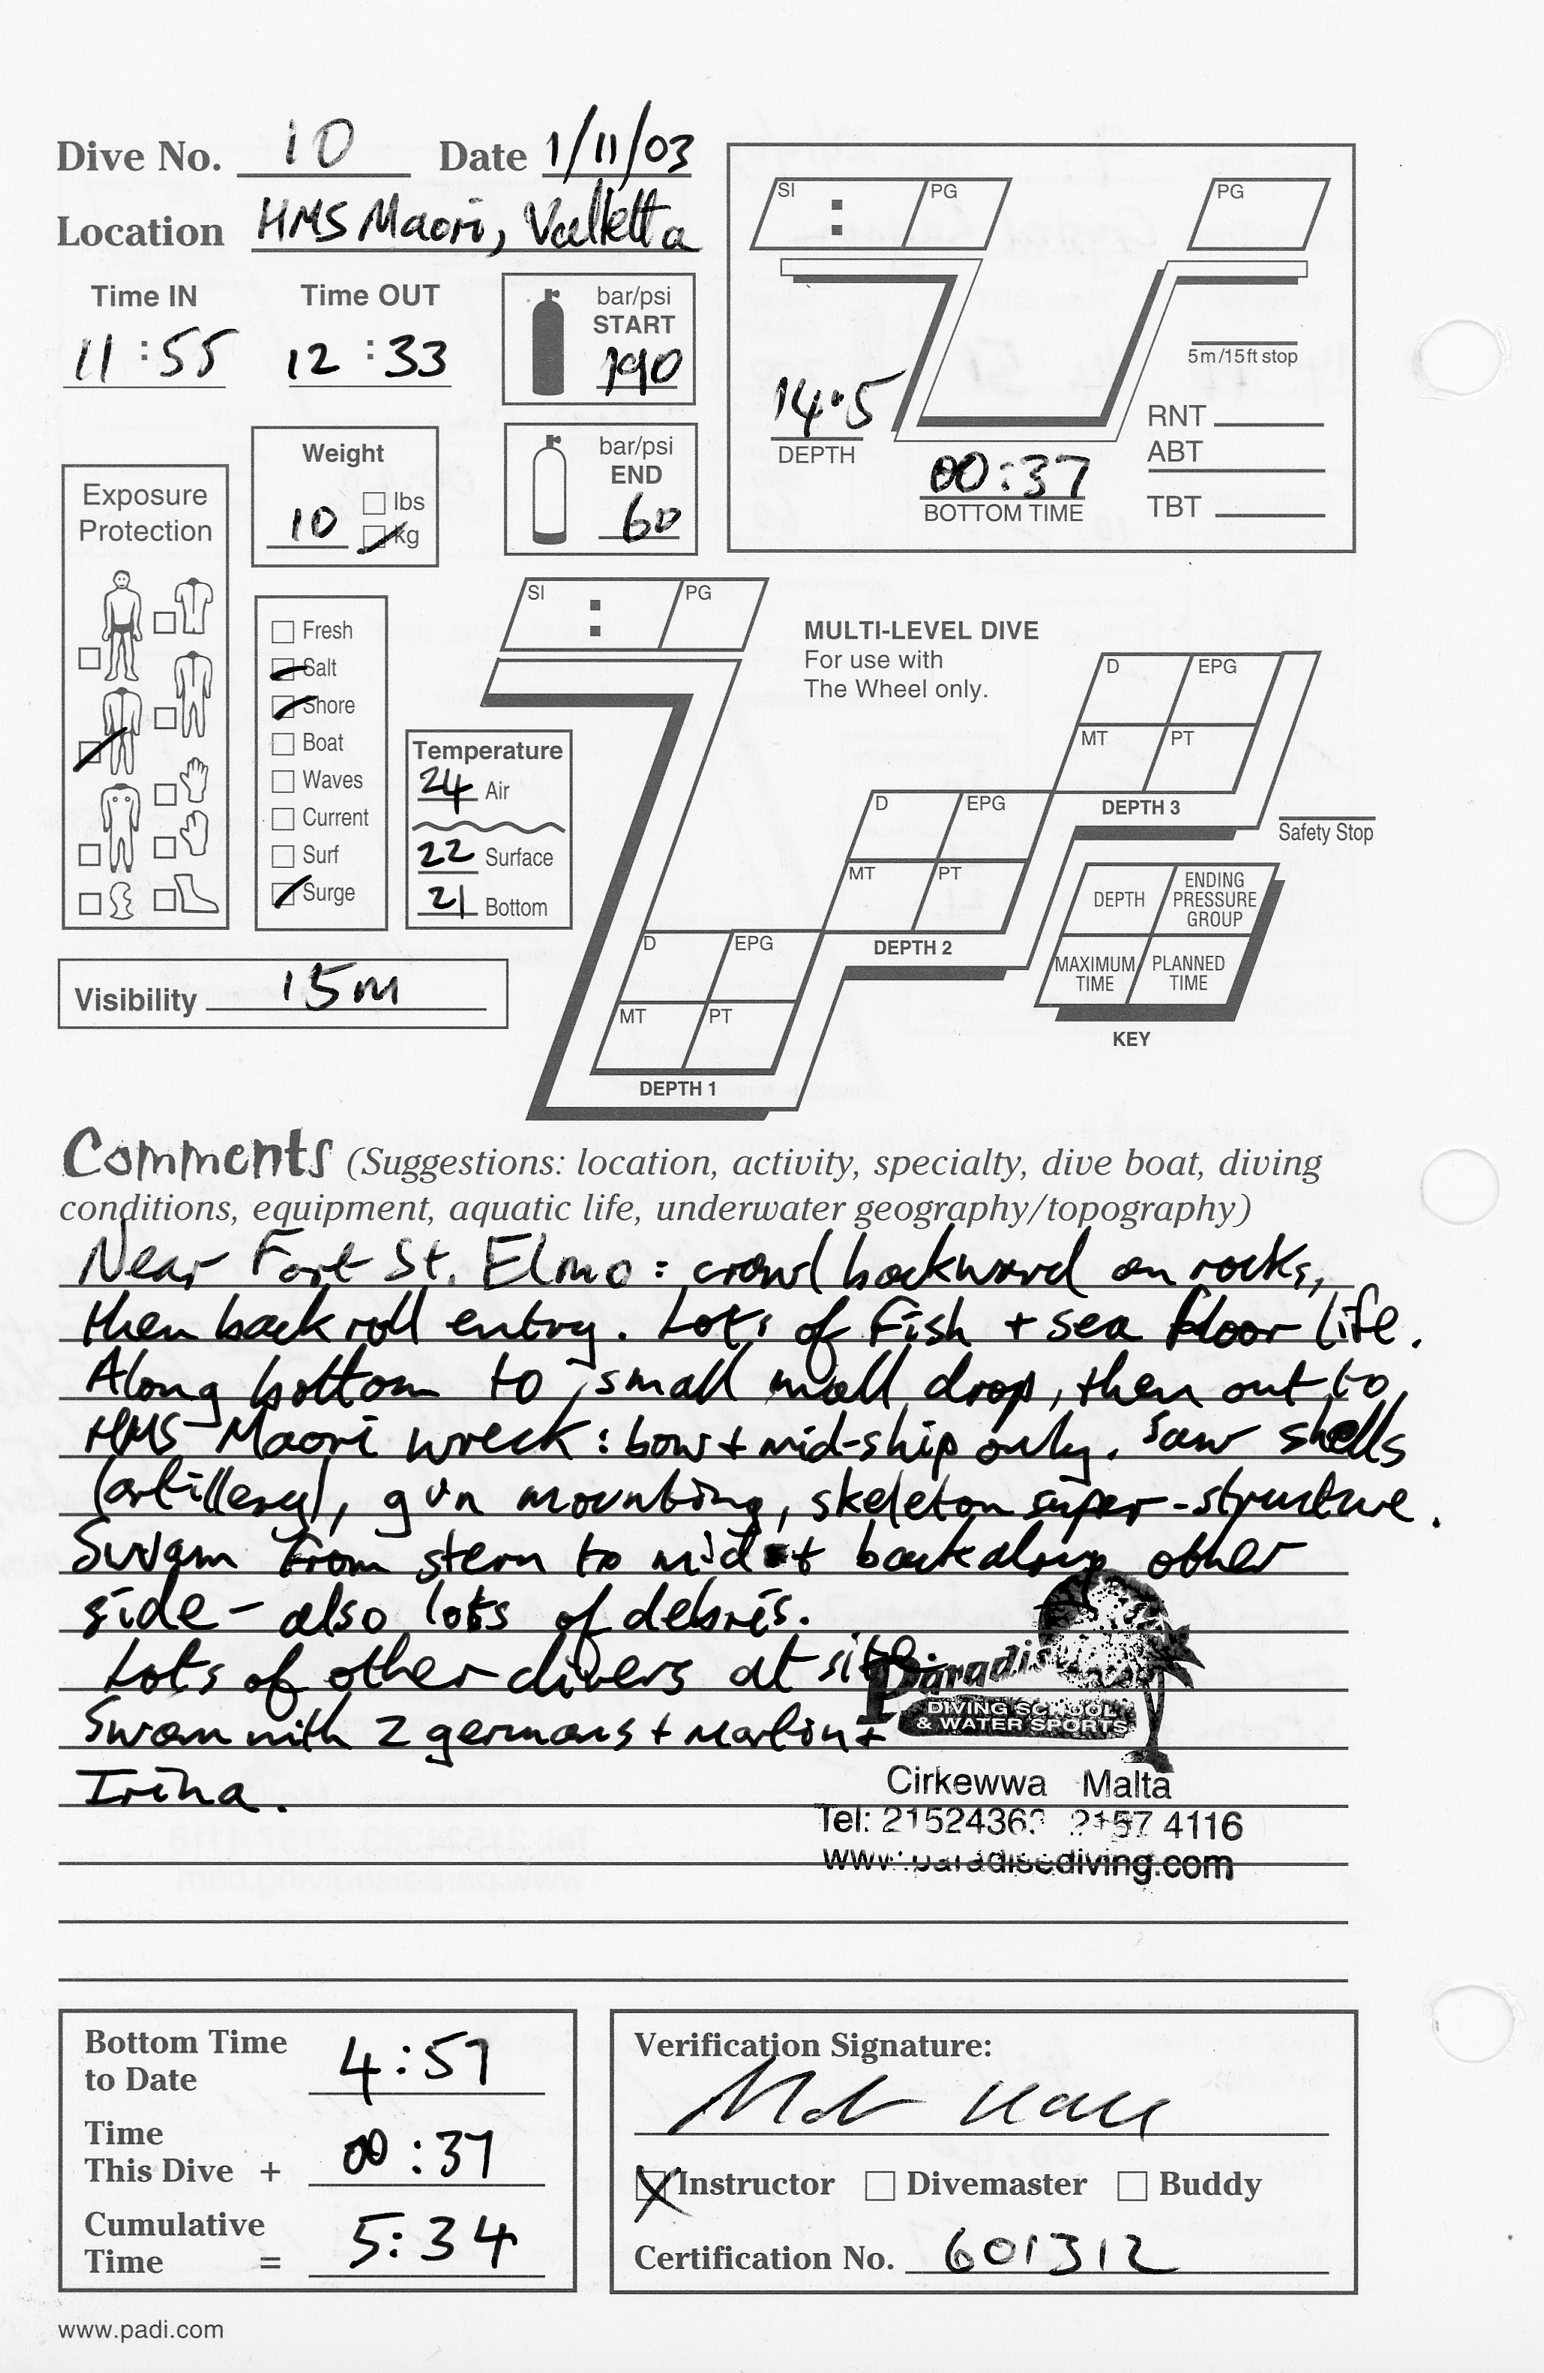 Dive No. 10 Date 1/11/03
Location HMS Maori, Valletta
Time IN Time OUT
11:55 12:33
bar/psi
START
190
bar/psi
END
60
Weight
10
lbs
kg
Exposure
Protection
Fresh
Salt
Shore
Boat
Waves
Current
Surf
Surge
Temperature
24 Air
22 Surface
21 Bottom
Visibility 15m
SI : PG
PG
14.5
DEPTH
00:37
BOTTOM TIME
5m/15ft stop
RNT
ABT
TBT
SI : PG
MULTI-LEVEL DIVE
For use with
The Wheel only.
D EPG
MT PT
DEPTH 1
D EPG
MT PT
DEPTH 2
D EPG
MT PT
DEPTH 3
Safety Stop
DEPTH
ENDING
PRESSURE
GROUP
MAXIMUM
TIME
PLANNED
TIME
KEY
Comments (Suggestions: location, activity, specialty, dive boat, diving
conditions, equipment, aquatic life, underwater geography/topography)
Near Fort St. Elmo: crawl backward on rocks,
then back roll entry. Lots of Fish + sea floor life.
Along bottom to small wall drop, then out to
HMS Maori wreck: bow + mid-ship only. Saw shells
(artillery), gun mounting, skeleton super-structure.
Swam from stern to mid + back along other
side - also lots of debris.
Lots of other divers at site.
Swam with 2 germans + Martin +
Irina.
Paradise
DIVING SCHOOL
& WATER SPORTS
Cirkewwa Malta
Tel: 4116
www.paradisediving.com
Bottom Time
to Date 4:57
Time
This Dive + 00:37
Cumulative
Time = 5:34
Verification Signature:
Instructor Divemaster Buddy
Certification No. 601312
www.padi.com